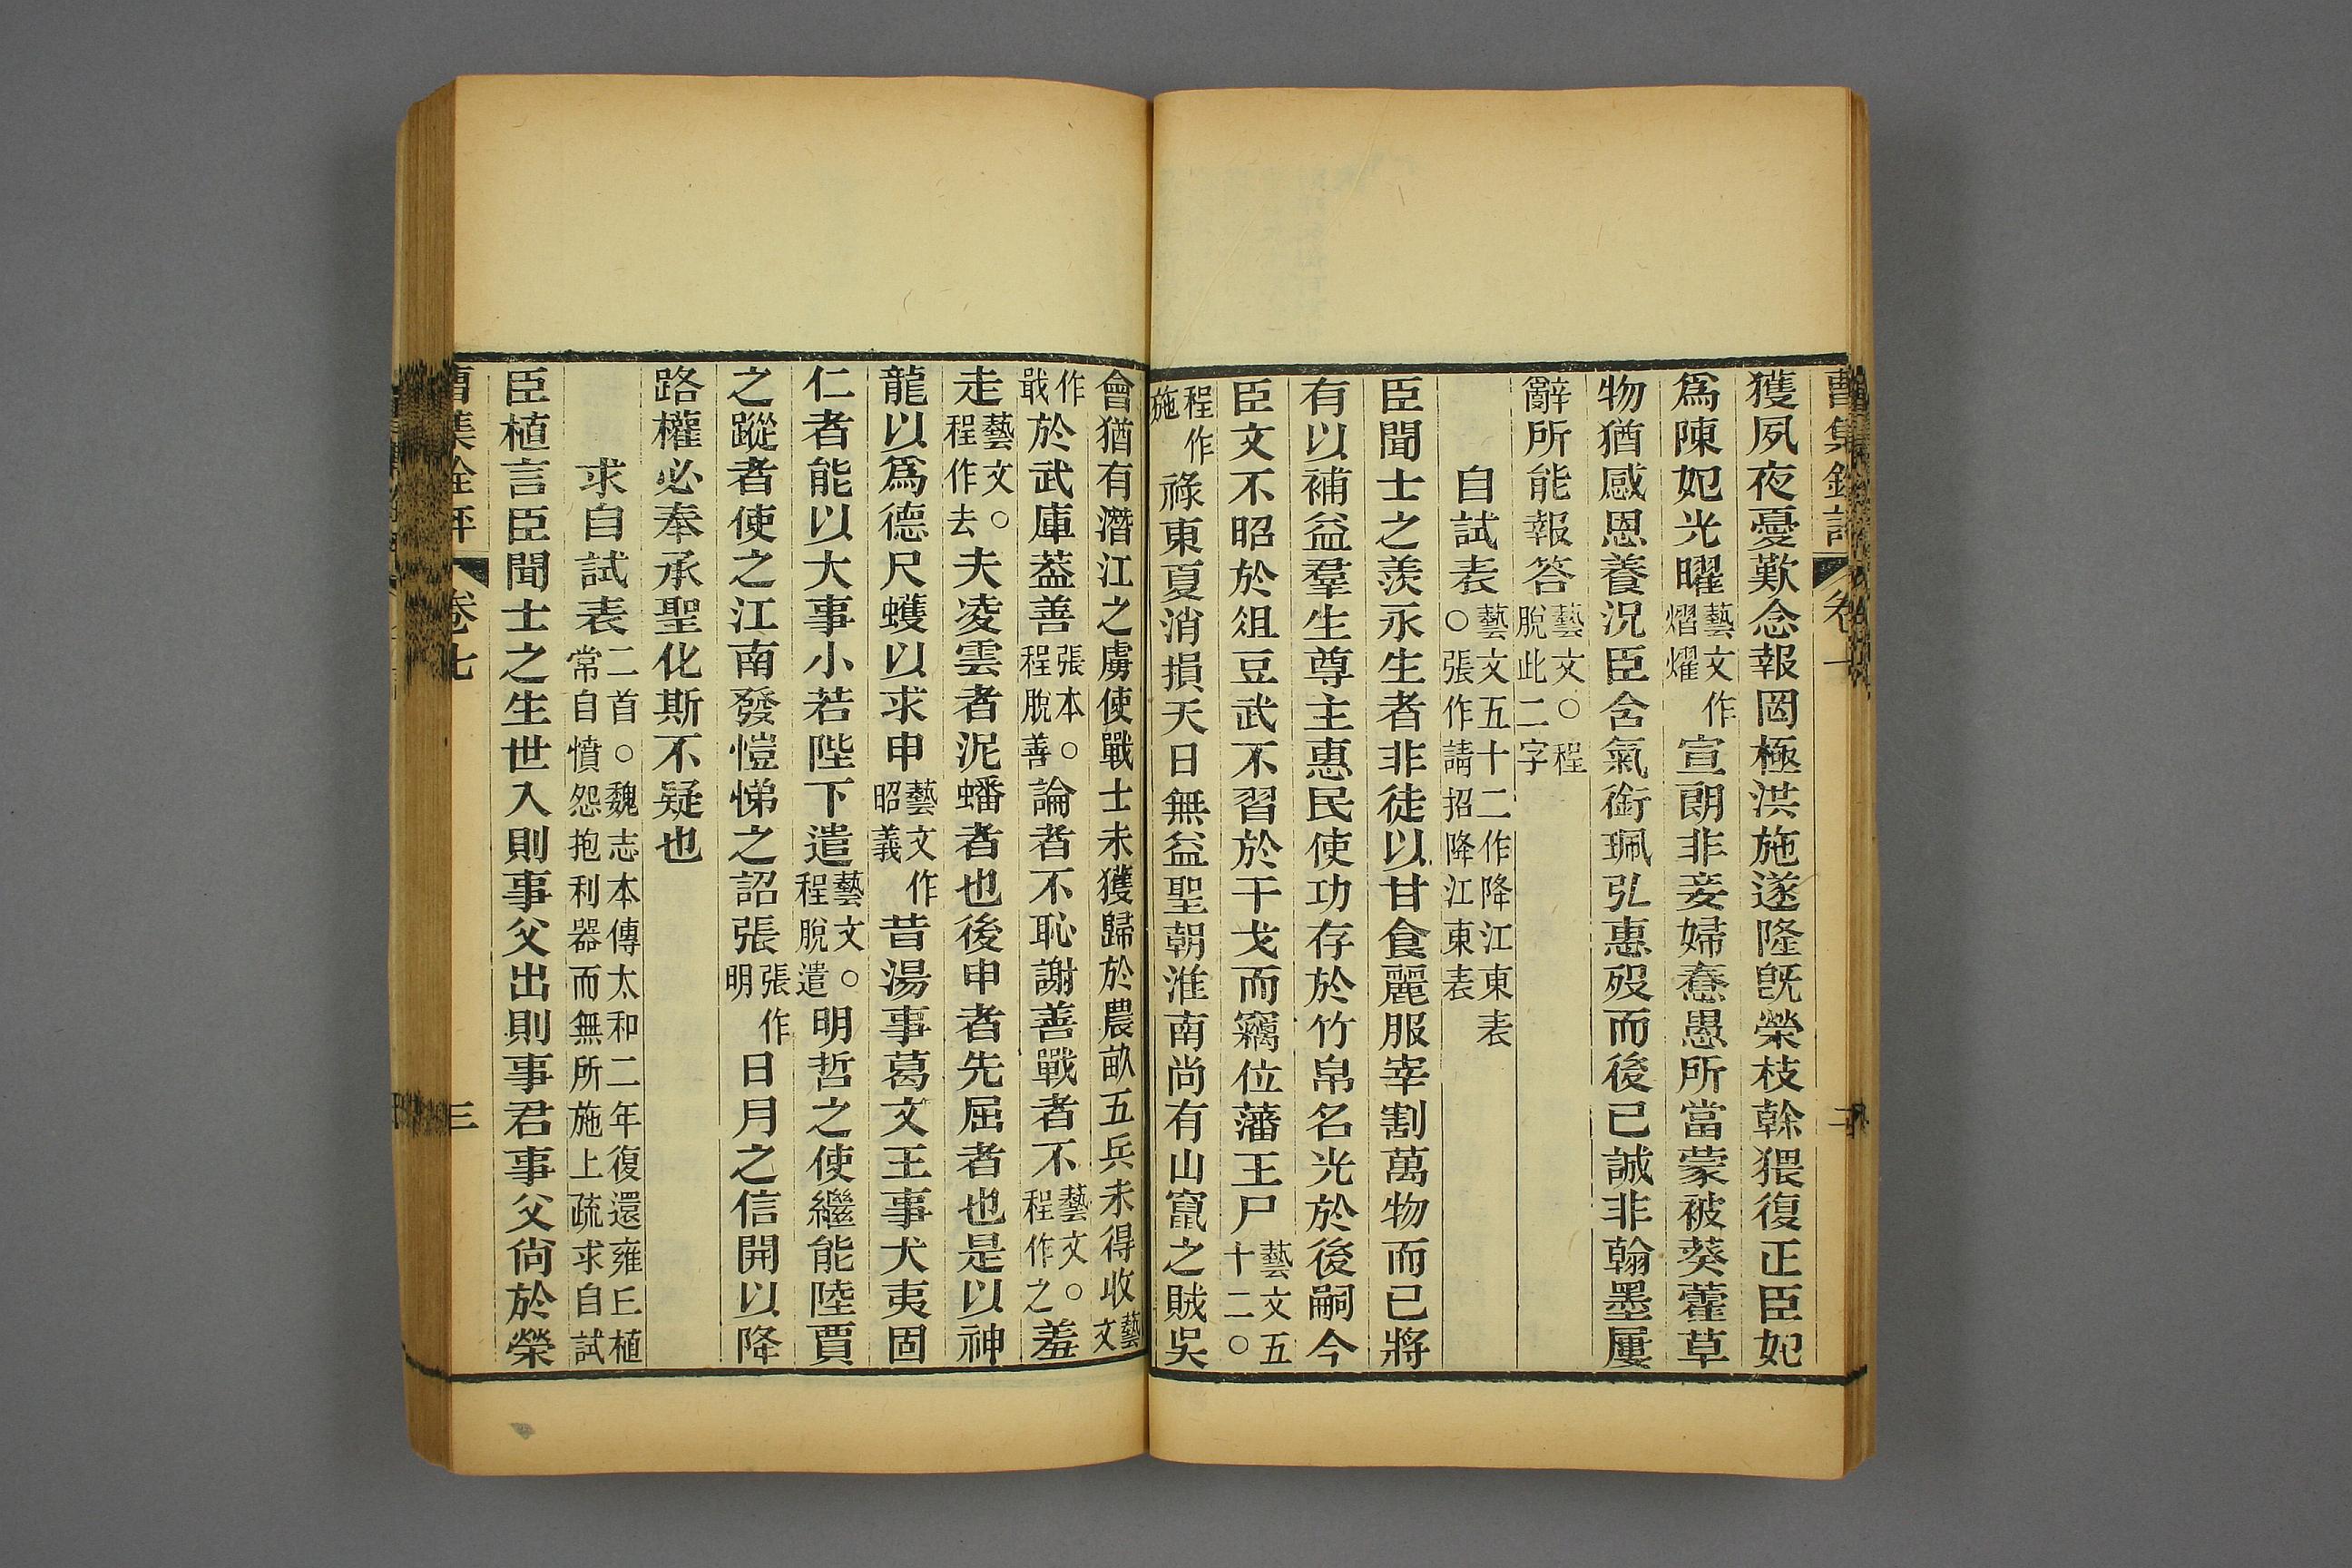 獲夙夜憂歎念報罔極洪施遂隆旣榮枝榦猥復正臣妃
爲陳妃光曜藝文作熠燿宣朗非妾婦惷愚所當蒙被葵藿草
物猶感恩養況臣含氣銜珮弘惠歿而後已誠非翰墨屢
辭所能報答藝文○程脫此二字
自試表○藝文五十二作降江東表張作請招降江東表
臣聞士之羨永生者非徒以甘食麗服宰割萬物而已將
有以補益羣生尊主惠民使功存於竹帛名光於後嗣今
臣文不昭於俎豆武不習於干戈而竊位藩王尸藝文五十二○
程作施祿東夏消損天日無益聖朝淮南尚有山竄之賊吳
會猶有潛江之虜使戰士未獲歸於農畝五兵未得收藝文
作戢於武庫葢善張本○程脫善論者不恥謝善戰者不藝文○程作之羞
走藝文○程作去夫凌雲者泥蟠者也後申者先屈者也是以神
龍以爲德尺蠖以求申藝文作昭義昔湯事葛文王事犬夷固
仁者能以大事小若陛下遣藝文○程脫遣明哲之使繼能陸賈
之蹤者使之江南發愷悌之詔張張作明日月之信開以降
路權必奉承聖化斯不疑也
求自試表二首○魏志本傳太和二年復還雍丘植常自憤怨抱利器而無所施上疏求自試
臣植言臣聞士之生世入則事父出則事君事父尙於榮
曹集銓評 卷七 三